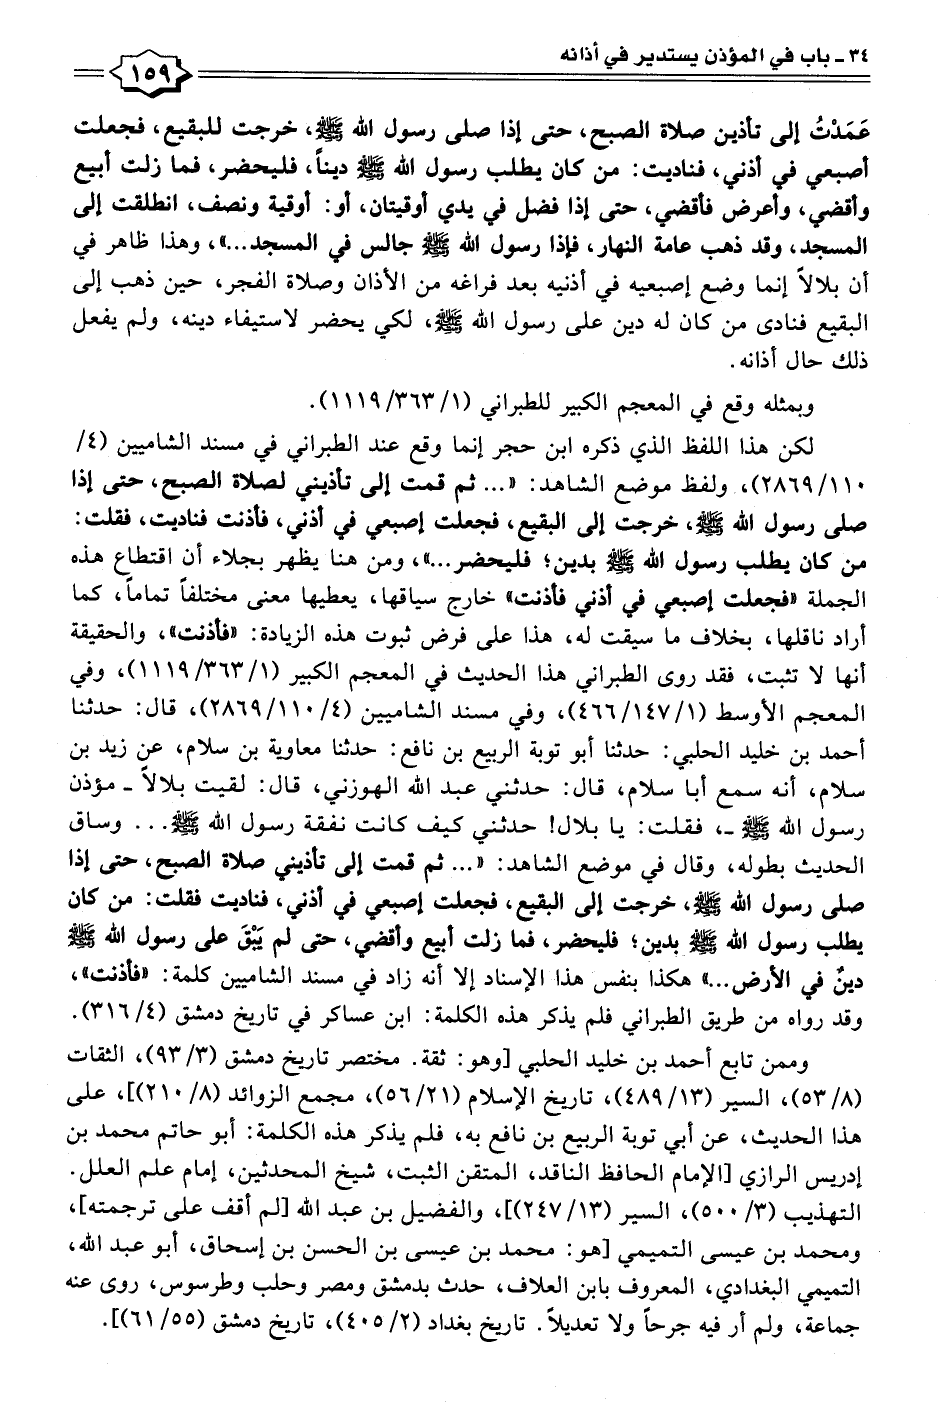 ٣٤ - باب في المؤذن يستدير في أذانه
١٥٩
عَمَدْتُ إلى تأذين صلاة الصبح، حتى إذا صلى رسول الله ﷺ، خرجت للبقيع، فجعلت
أصبعي في أذني، فناديت: من كان يطلب رسول الله ﷺ ديناً، فليحضر، فما زلت أبيع
وأقضي، وأعرض فأقضي، حتى إذا فضل في يدي أوقيتان، أو: أوقية ونصف، انطلقت إلى
المسجد، وقد ذهب عامة النهار، فإذا رسول الله ﷺ جالس في المسجد...»، وهذا ظاهر في
أن بلالاً إنما وضع إصبعيه في أذنيه بعد فراغه من الأذان وصلاة الفجر، حين ذهب إلى
البقيع فنادى من كان له دين على رسول الله ﷺ، لكي يحضر لاستيفاء دينه، ولم يفعل
ذلك حال أذانه.
وبمثله وقع في المعجم الكبير للطبراني (١/ ٣٦٣/ ١١١٩).
لكن هذا اللفظ الذي ذكره ابن حجر إنما وقع عند الطبراني في مسند الشاميين (٤/
١١٠/ ٢٨٦٩)، ولفظ موضع الشاهد: «... ثم قمت إلى تأذيني لصلاة الصبح، حتى إذا
صلى رسول الله ﷺ، خرجت إلى البقيع، فجعلت إصبعي في أذني، فأذنت فناديت، فقلت:
من كان يطلب رسول الله ﷺ بدين؛ فليحضر...»، ومن هنا يظهر بجلاء أن اقتطاع هذه
الجملة «فجعلت إصبعي في أذني فأذنت» خارج سياقها، يعطيها معنى مختلفاً تماماً، كما
أراد ناقلها، بخلاف ما سيقت له، هذا على فرض ثبوت هذه الزيادة: «فأذنت»، والحقيقة
أنها لا تثبت، فقد روى الطبراني هذا الحديث في المعجم الكبير (١/ ٣٦٣/ ١١١٩)، وفي
المعجم الأوسط (١/ ١٤٧/ ٤٦٦)، وفي مسند الشاميين (٤/ ١١٠/ ٢٨٦٩)، قال: حدثنا
أحمد بن خليد الحلبي: حدثنا أبو توبة الربيع بن نافع: حدثنا معاوية بن سلام، عن زيد بن
سلام، أنه سمع أبا سلام، قال: حدثني عبد الله الهوزني، قال: لقيت بلالاً - مؤذن
رسول الله ﷺ -، فقلت: يا بلال! حدثني كيف كانت نفقة رسول الله ﷺ... وساق
الحديث بطوله، وقال في موضع الشاهد: «... ثم قمت إلى تأذيني صلاة الصبح، حتى إذا
صلى رسول الله ﷺ، خرجت إلى البقيع، فجعلت إصبعي في أذني، فناديت فقلت: من كان
يطلب رسول الله ﷺ بدين؛ فليحضر، فما زلت أبيع وأقضي، حتى لم يَبْقَ على رسول الله ﷺ
دينٌ في الأرض...» هكذا بنفس هذا الإسناد إلا أنه زاد في مسند الشاميين كلمة: «فأذنت»،
وقد رواه من طريق الطبراني فلم يذكر هذه الكلمة: ابن عساكر في تاريخ دمشق (٤/ ٣١٦).
وممن تابع أحمد بن خليد الحلبي [وهو: ثقة. مختصر تاريخ دمشق (٣/ ٩٣)، الثقات
(٨/ ٥٣)، السير (١٣/ ٤٨٩)، تاريخ الإسلام (٢١/ ٥٦)، مجمع الزوائد (٨/ ٢١٠)]، على
هذا الحديث، عن أبي توبة الربيع بن نافع به، فلم يذكر هذه الكلمة: أبو حاتم محمد بن
إدريس الرازي [الإمام الحافظ الناقد، المتقن الثبت، شيخ المحدثين، إمام علم العلل.
التهذيب (٣/ ٥٠٠)، السير (١٣/ ٢٤٧)]، والفضيل بن عبد الله [لم أقف على ترجمته]،
ومحمد بن عيسى التميمي [هو: محمد بن عيسى بن الحسن بن إسحاق، أبو عبد الله،
التميمي البغدادي، المعروف بابن العلاف، حدث بدمشق ومصر وحلب وطرسوس، روى عنه
جماعة، ولم أر فيه جرحاً ولا تعديلاً. تاريخ بغداد (٢/ ٤٠٥)، تاريخ دمشق (٥٥/ ٦١)].